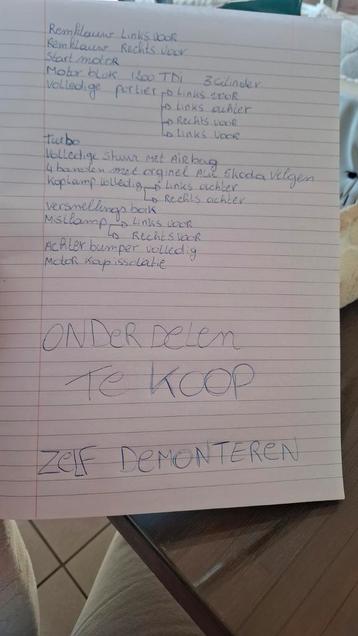 Remklauw Links voor
Remklauw Rechts voor
Start motor
Motor blok 1200 TDI 3 Cilinder
volledige portier → Links voor
→ Links achter
→ Rechts voor
→ Links voor
turbo
volledige stuur met Airbag
4 banden met orginel Alu Skoda velgen
Koplamp volledig → Links achter
→ Rechts achter
versnellingsbak
Mistlamp → Links voor
→ Rechts voor
Achter bumper volledig
Motor Kap isolatie
ONDERDELEN
TE KOOP
ZELF DEMONTEREN